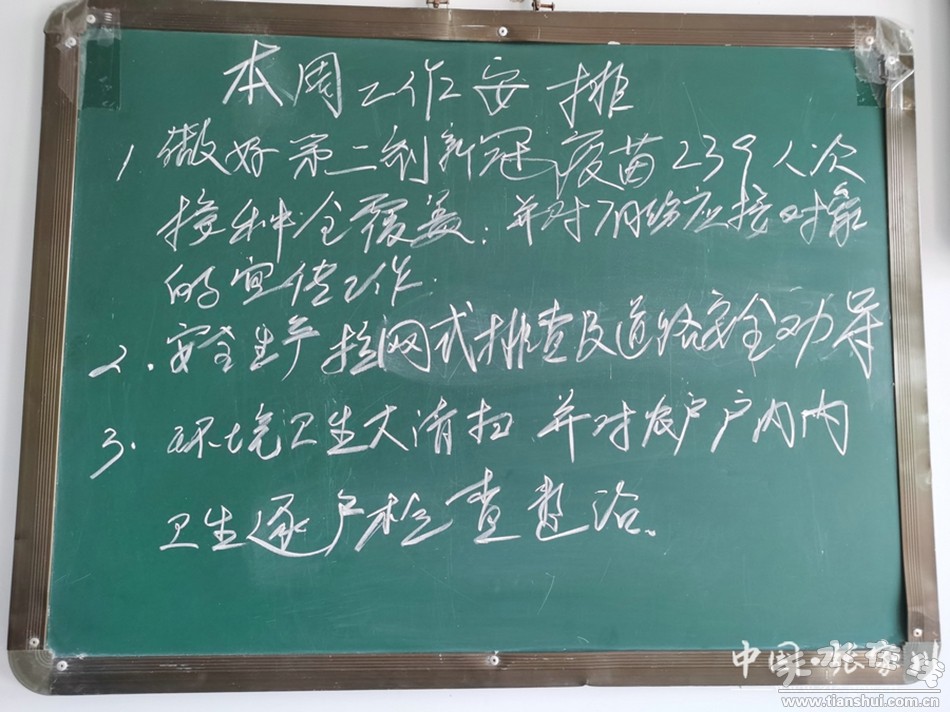 本周工作安排
1 做好第二剂新冠疫苗239人次
接种全覆盖;并对应接对象
的宣传工作.
2.安全生产拉网式排查及道路安全劝导
3.环境卫生大清扫 并对农户户内内
卫生逐户检查整治。
中国·张家川
www.tianshui.com.cn